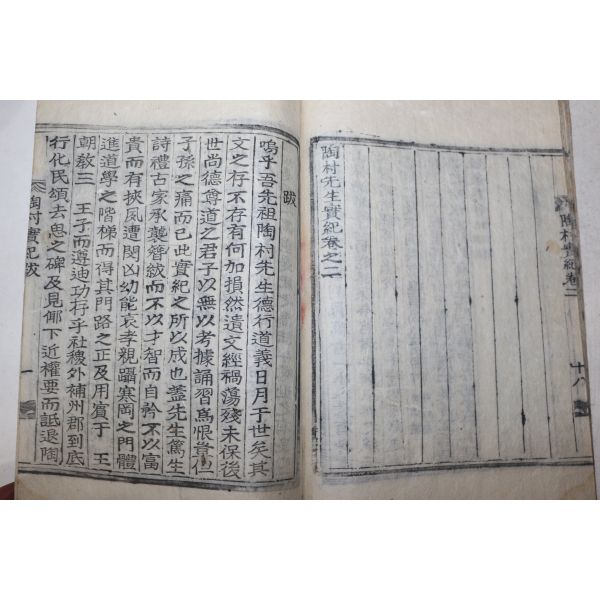 陶村先生實紀卷之二
陶村實紀卷二
十八
跋
嗚乎吾先祖陶村先生德行道義日月于世矣其
文之存不存有何加損然遺文經禍蕩殘未保後
世尚德尊道之君子以無以考據誦習爲恨豈但
子孫之痛而已此實紀之所以成也盖先生篤生
詩禮古家承襲簪紱而不以才智而自矜不以富
貴而有挾夙遭閔凶幼能哀孝親躡寒岡之門體
進道學之階梯而得其門路之正及用賓于 王
朝敎三 王子而遵迪功存乎社稷外補州郡到底
行化民頌去思之碑及昆鄕下近權要而詆退陶
陶村實紀跋
一